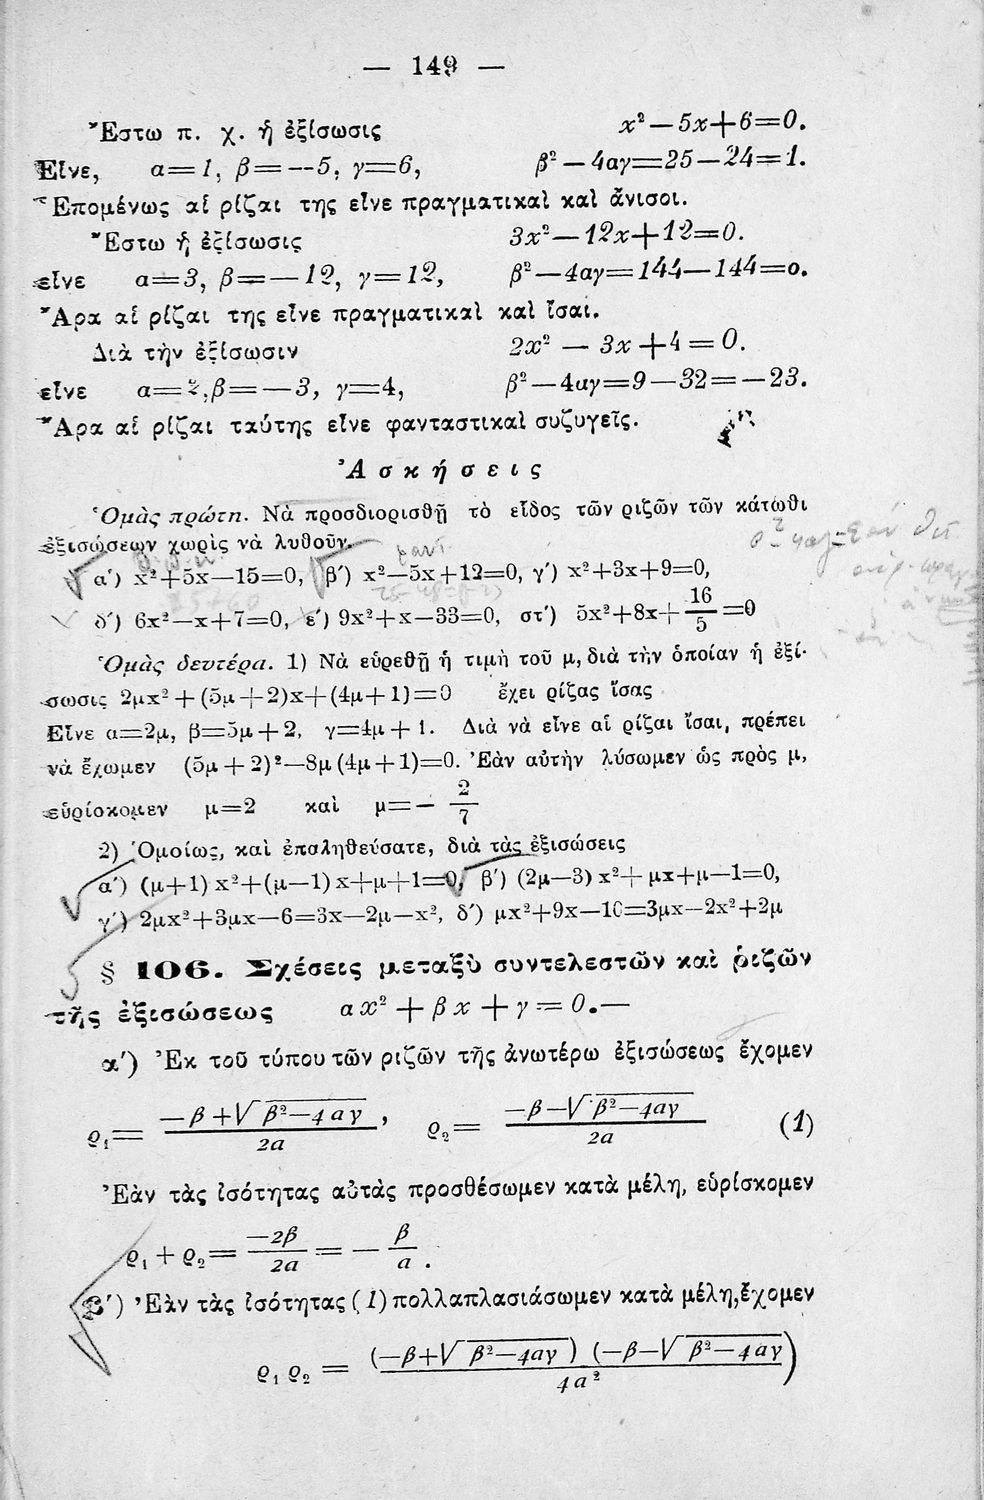 — 149 —
Ἔστω π. χ. ἡ ἐξίσωσις x²—5x+6=0.
Εἶνε, α=1, β=—5, γ=6, β²—4αγ=25—24=1.
Ἑπομένως αἱ ρίζαι της εἶνε πραγματικαὶ καὶ ἄνισοι.
Ἔστω ἡ ἐξίσωσις 3x²—12x+12=0.
εἶνε α=3, β=—12, γ=12, β²—4αγ=144—144=0.
Ἄρα αἱ ρίζαι της εἶνε πραγματικαὶ καὶ ἴσαι.
Διὰ τὴν ἐξίσωσιν 2x² — 3x +4 = 0.
εἶνε α=2, β=—3, γ=4, β²—4αγ=9—32=—23.
Ἄρα αἱ ρίζαι ταύτης εἶνε φανταστικαὶ συζυγεῖς.
Ἀσκήσεις
Ὁμὰς πρώτη. Νὰ προσδιορισθῇ τὸ εἶδος τῶν ριζῶν τῶν κάτωθι
ἐξισώσεων χωρὶς νὰ λυθοῦν.
α΄) x²+5x—15=0, β΄) x²—5x+12=0, γ΄) x²+3x+9=0,
δ΄) 6x²—x+7=0, ε΄) 9x²+x—33=0, στ΄) 5x²+8x+16/5=0
Ὁμὰς δευτέρα. 1) Νὰ εὑρεθῇ ἡ τιμὴ τοῦ μ, διὰ τὴν ὁποίαν ἡ ἐξί-
σωσις 2μx²+(5μ+2)x+(4μ+1)=0 ἔχει ρίζας ἴσας
Εἶνε α=2μ, β=5μ+2, γ=4μ+1. Διὰ νὰ εἶνε αἱ ρίζαι ἴσαι, πρέπει
νὰ ἔχωμεν (5μ+2)²—8μ(4μ+1)=0. Ἐὰν αὐτὴν λύσωμεν ὡς πρὸς μ,
εὑρίσκομεν μ=2 καὶ μ=— 2/7
2) Ὁμοίως, καὶ ἐπαληθεύσατε, διὰ τὰς ἐξισώσεις
α΄) (μ+1)x²+(μ—1)x+μ+1=0, β΄) (2μ—3)x²+μx+μ—1=0,
γ΄) 2μx²+3μx—6=3x—2μ—x², δ΄) μx²+9x—10=3μx—2x²+2μ
§ 106. Σχέσεις μεταξὺ συντελεστῶν καὶ ῥιζῶν
τῆς ἐξισώσεως αx²+βx+γ=0.—
α΄) Ἐκ τοῦ τύπου τῶν ριζῶν τῆς ἀνωτέρω ἐξισώσεως ἔχομεν
ϱ₁= (—β+√β²—4αγ)/2α, ϱ₂= (—β—√β²—4αγ)/2α (1)
Ἐὰν τὰς ἰσότητας αὐτὰς προσθέσωμεν κατὰ μέλη, εὑρίσκομεν
ϱ₁+ϱ₂= —2β/2α = — β/α.
β΄) Ἐὰν τὰς ἰσότητας (1) πολλαπλασιάσωμεν κατὰ μέλη, ἔχομεν
ϱ₁ϱ₂ = (—β+√β²—4αγ) (—β—√β²—4αγ)/4α²